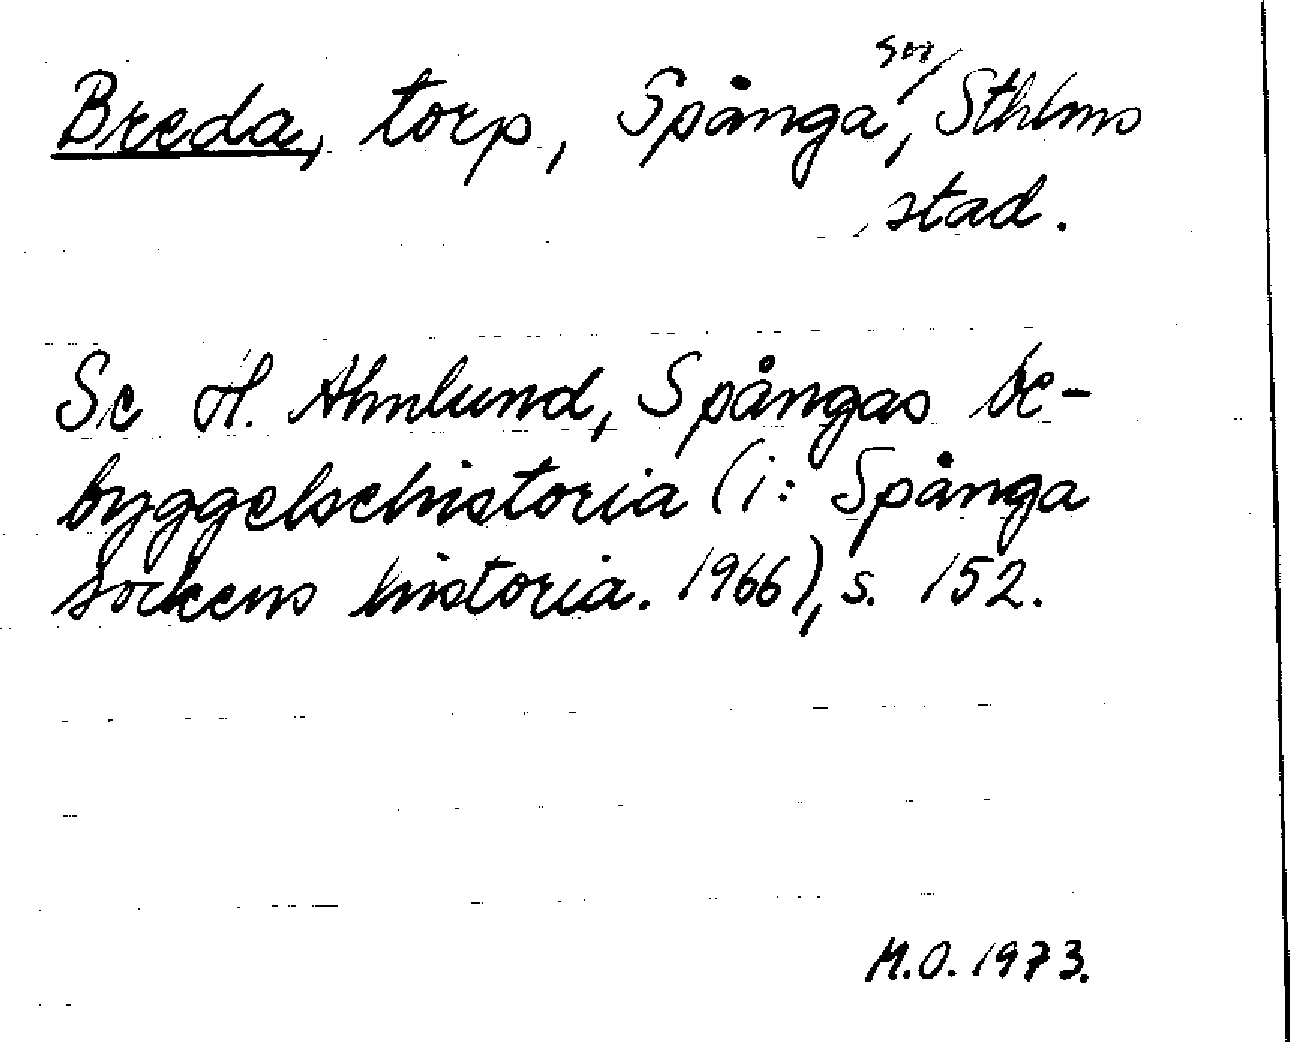 Breda, torp, Spånga sn, Sthlms
stad.
Se H. Ahnlund, Spångas be-
byggelsehistoria (i: Spånga
sockens historia. 1966), s. 152.
M.O. 1973.